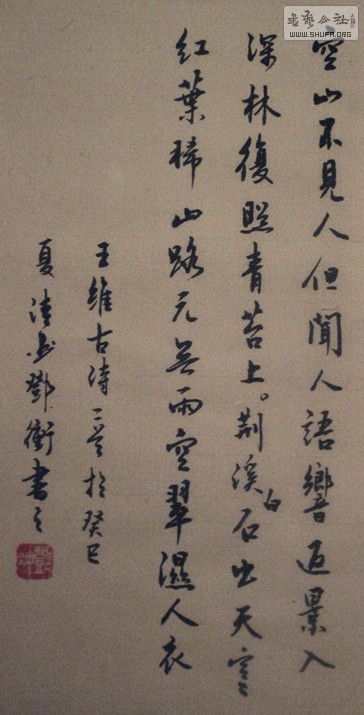 空山不見人但聞人語響返景入
深林復照青苔上。荆溪白石出天寒
紅葉稀山路元無雨空翠濕人衣
王維古詩二首於癸巳
夏清 鄧衡書之
書藝公社
WWW.SHUFA.ORG